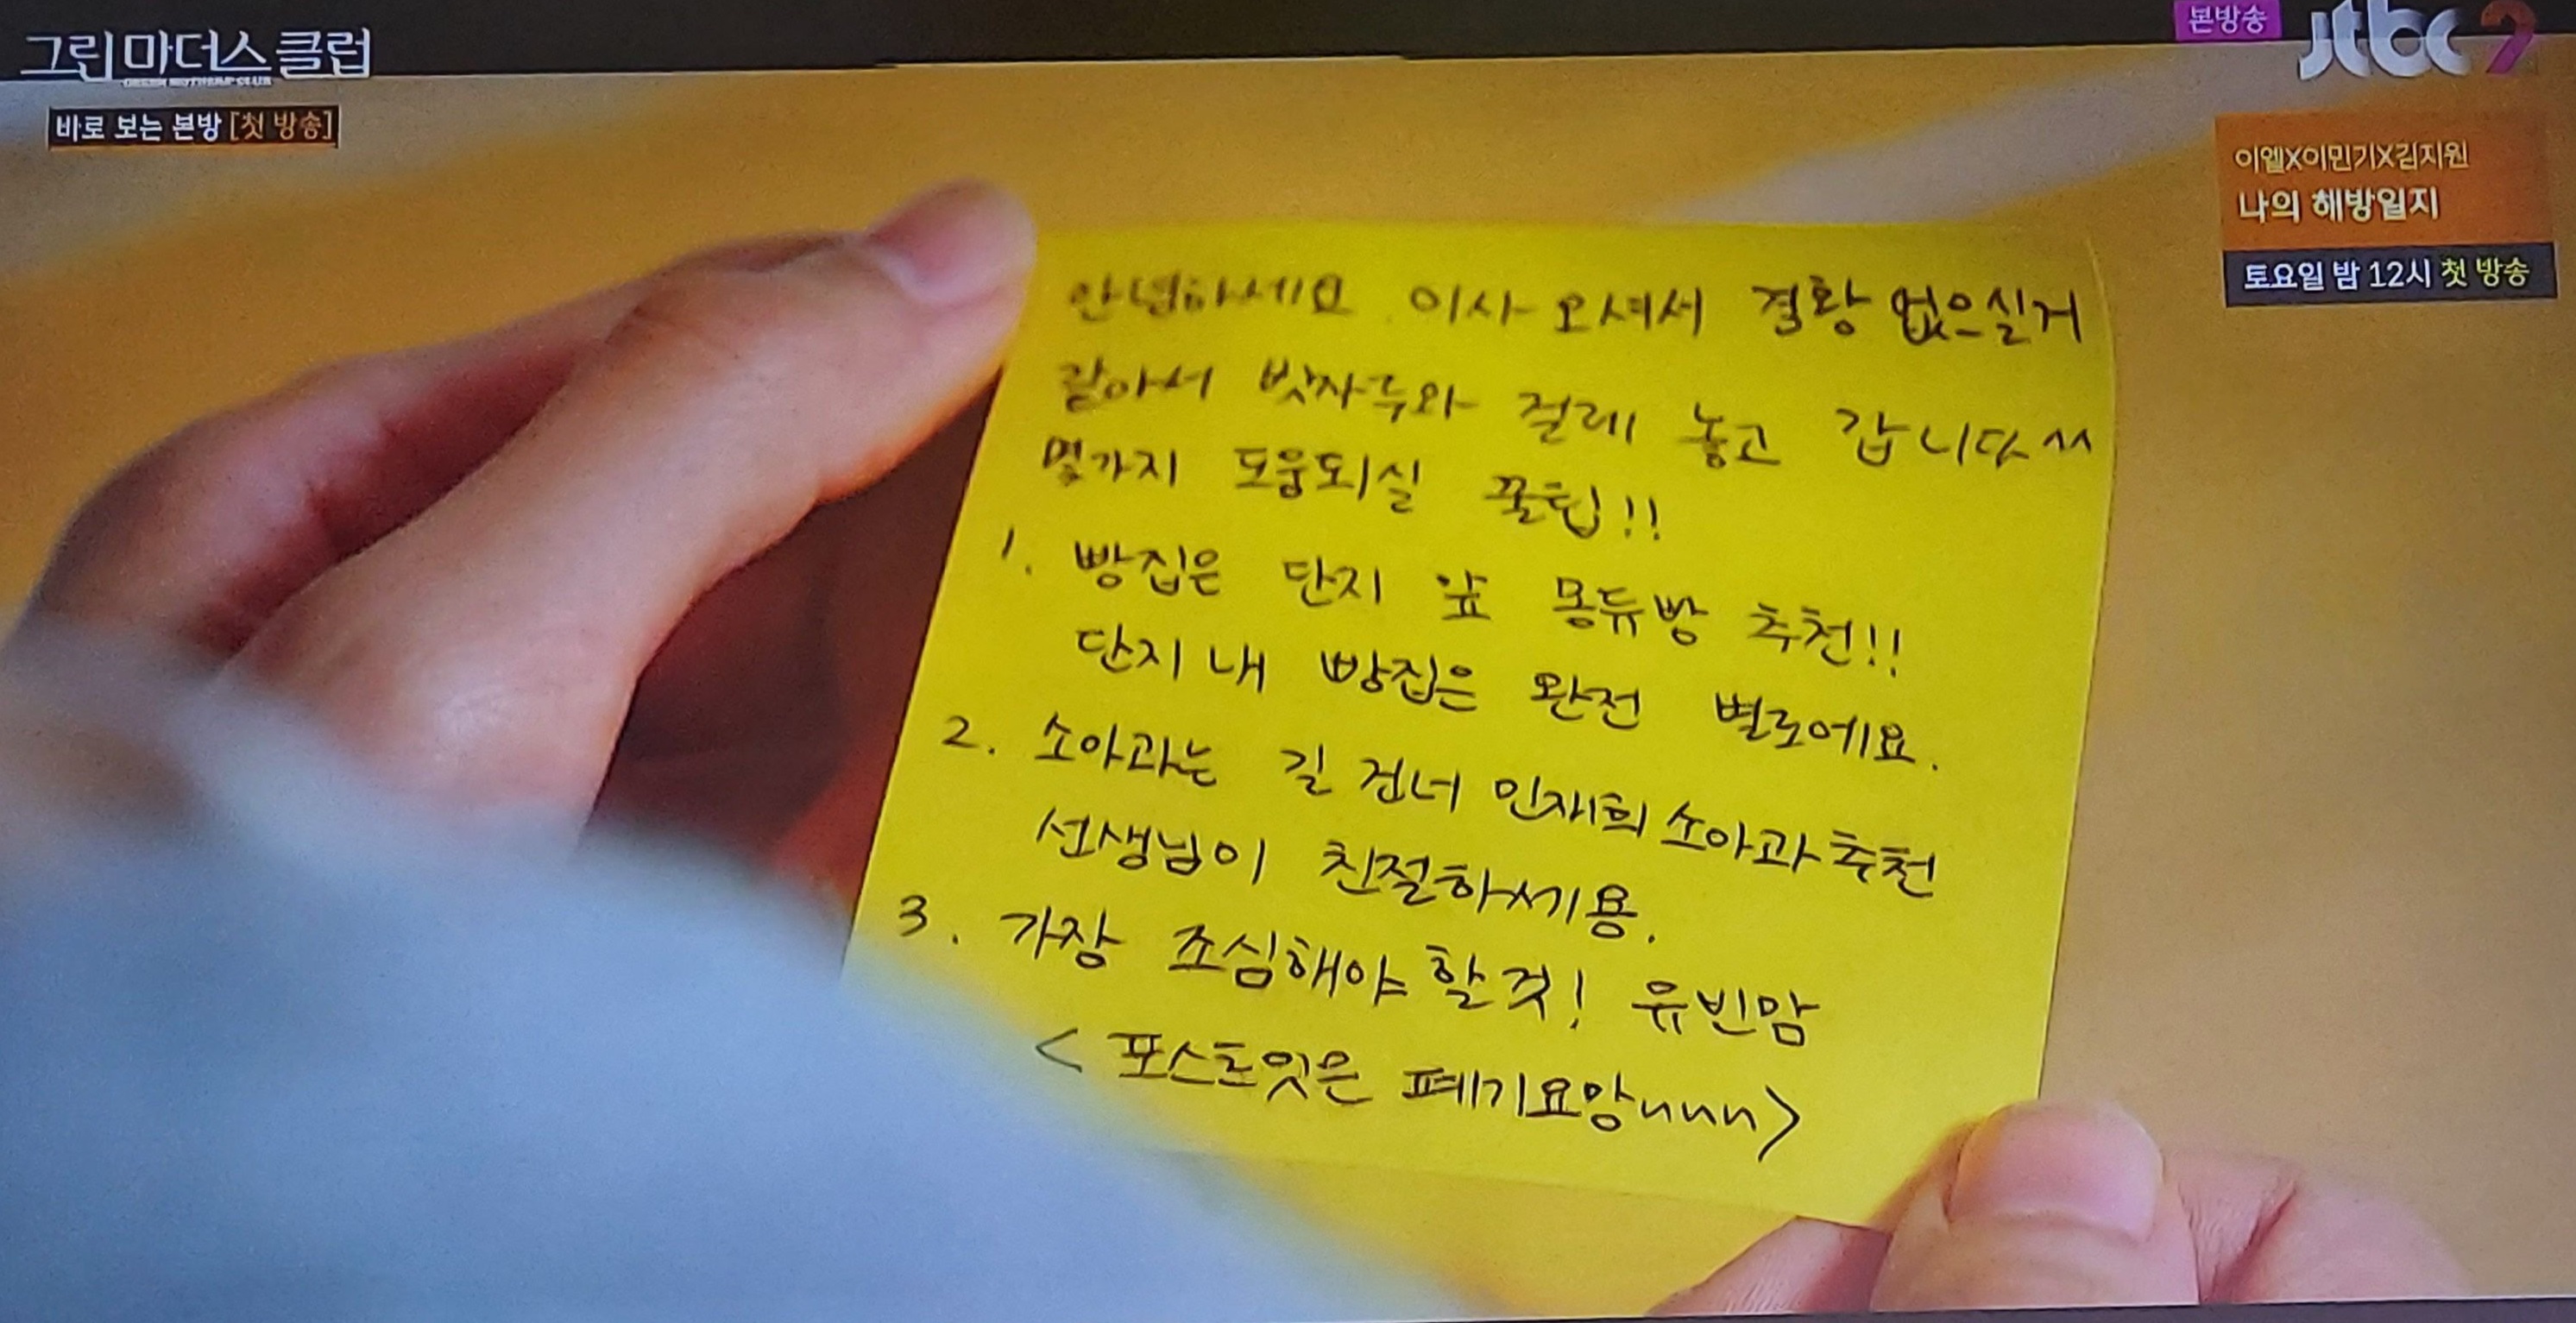 그린마더스클럽
GREEN MOTHERS' CLUB
바로 보는 본방 [첫 방송]
본방송
jtbc 2
이엘X이민기X김지원
나의 해방일지
토요일 밤 12시 첫 방송
안녕하세요. 이사 오셔서 경황 없으실거
같아서 밧자두와 걸레 놓고 갑니다^^
몇가지 도움되실 꿀팁!!
1. 빵집은 단지 앞 몽듀빵 추천!!
단지 내 빵집은 완전 별로에요.
2. 소아과는 길 건너 민재희 소아과 추천
선생님이 친절하세용.
3. 가장 조심해야 할 것! 유빈맘
< 포스트잇은 폐기요망 >